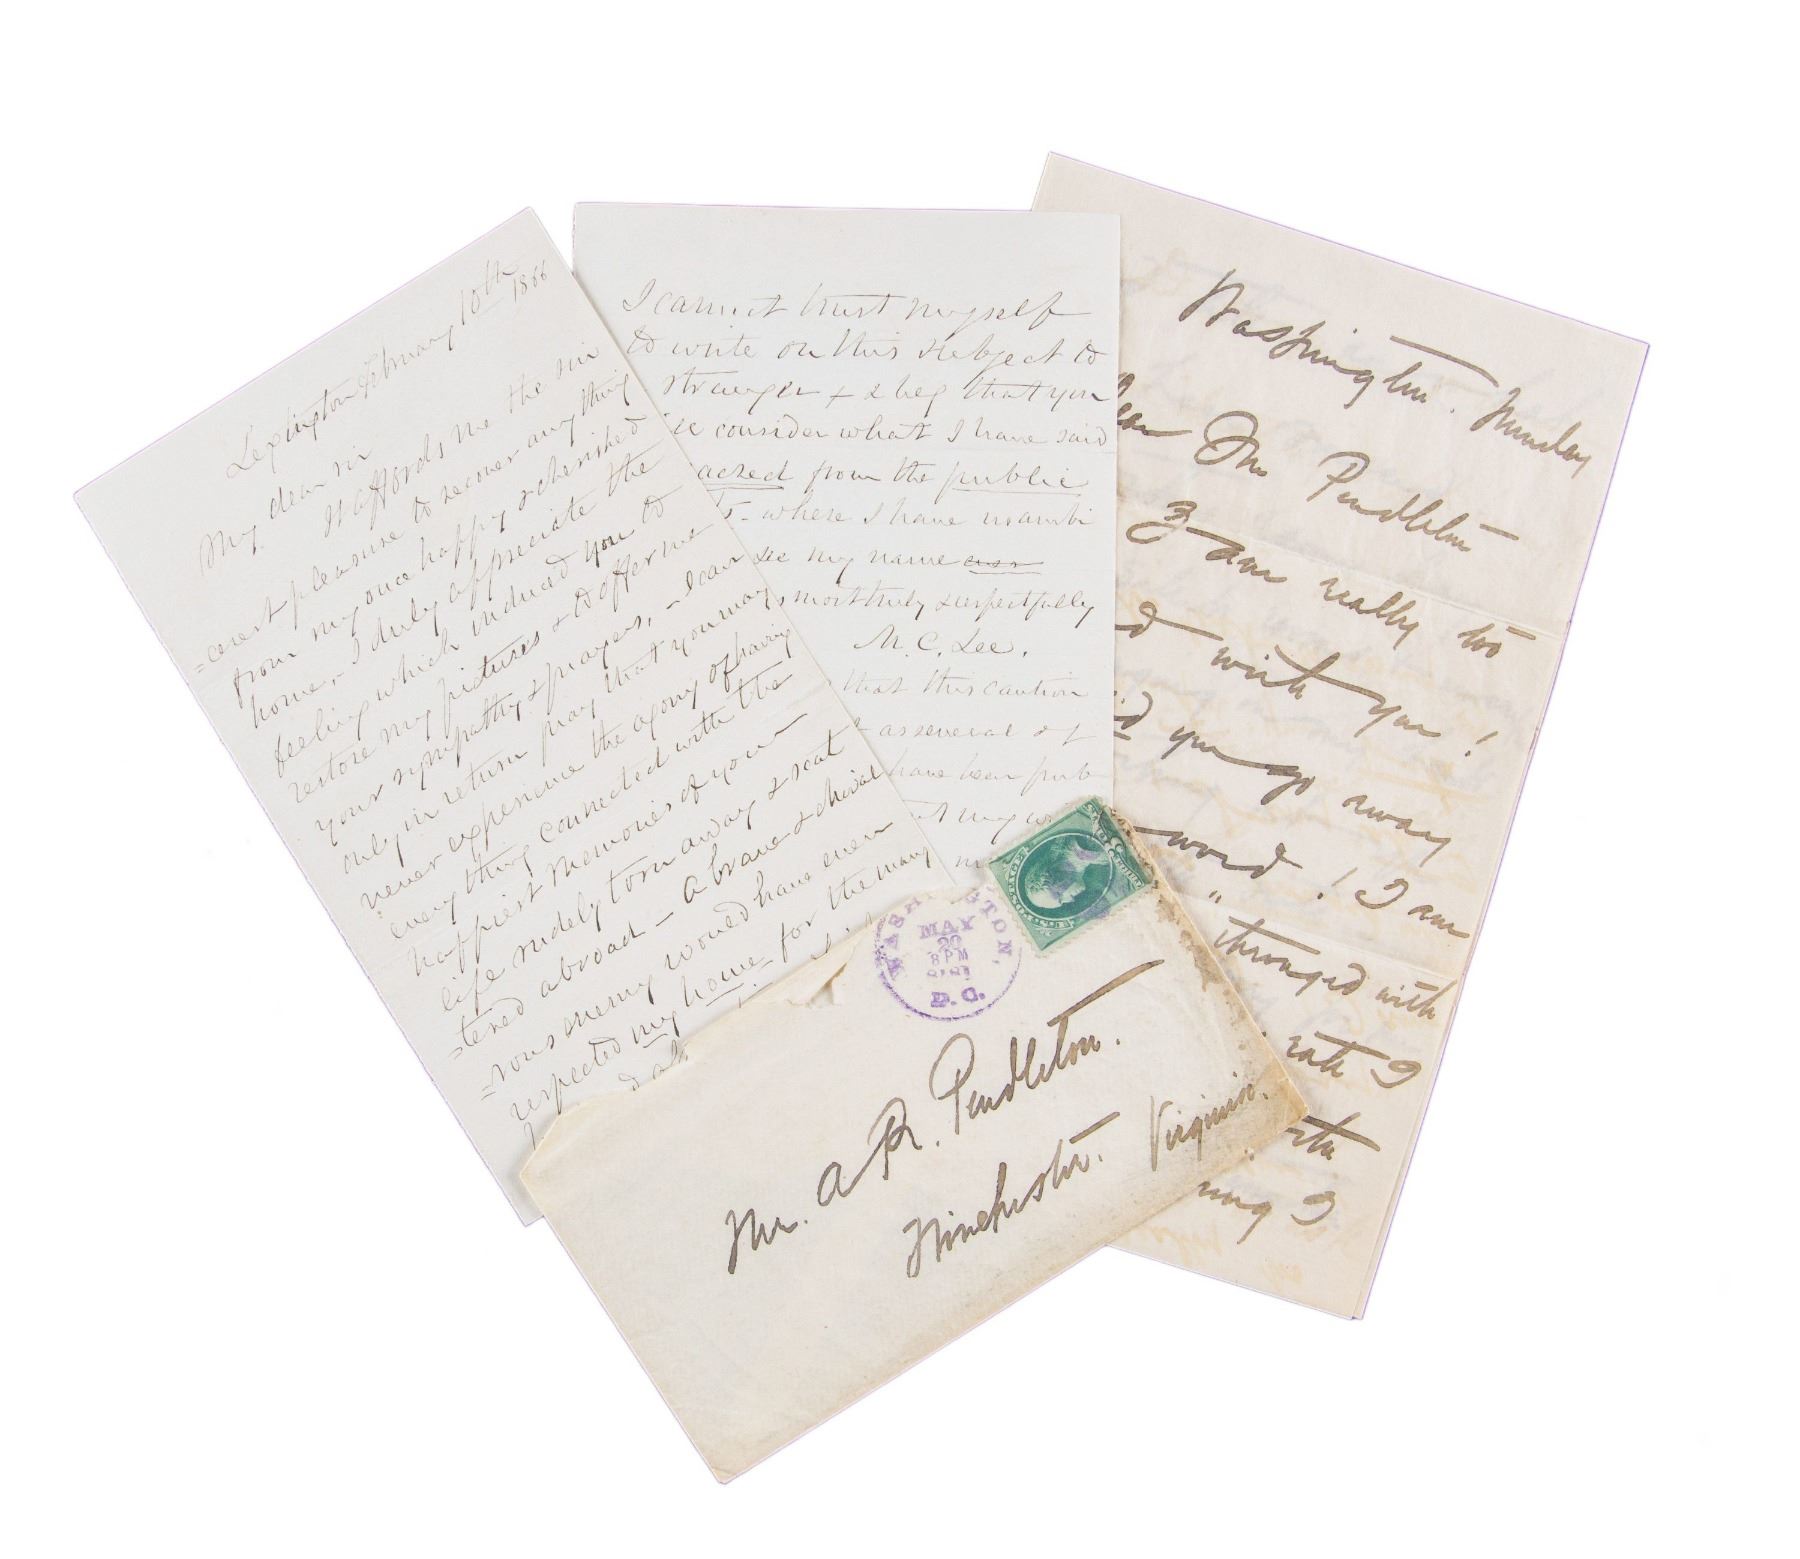 Lexington February 10th
1866
My dear sir
It affords me the sin
=cerest pleasure to recover any thing
from my once happy & cherished
home, - I duly appreciate the
feeling which induced you to
restore my pictures & to offer me
your sympathy & prayers, - I can
only in return pray that you may
never experience the agony of having
every thing connected with the
happiest memories of your
life rudely torn away & scat
=tered abroad - A brave & chival
=rous enemy would have even
respected my home for the many
I cannot trust myself
to write on this subject to
stranger & I beg that you
consider what I have said
from the public
where I have
see my name
most truly & respectfully
M. C. Lee.
that this caution
as several of
have been pub
Washington. Munday
Dear Mr Pendleton
I am really too
with you!
you go away
word! I am
" thronged with
rate I
I
POSTAGE
WASHINGTON,
MAY
20
8 PM
D.C.
Mr. A R. Pendleton.
Winchester. Virginia.